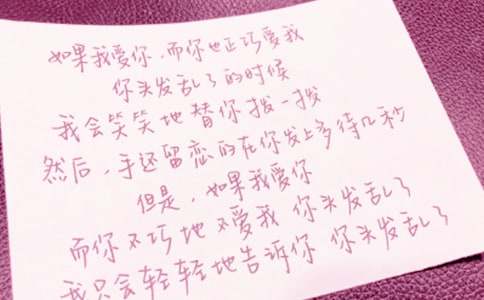 如果我爱你，而你也正巧爱我
你头发乱了的时候
我会笑笑地替你拨一拨
然后，手还留恋的在你发上多待几秒
但是，如果我爱你
而你不巧地不爱我 你头发乱了
我只会轻轻地告诉你 你头发乱了